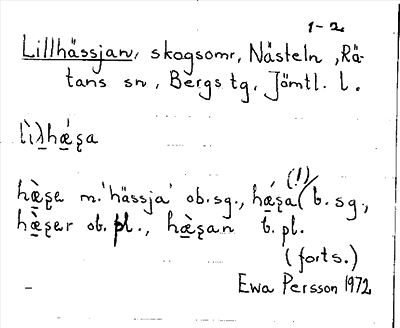 1-2
Lillhässjan, skogsomr, Nästeln, Rä-
tans sn, Bergs tg, Jämtl. l.
lìλhǽ̱ʂa
hæ̱̀ʂe m. 'hässja' ob.sg., hǽ̱ʂa (!) b.sg.,
hæ̱̀ʂer ob. pl., hæ̱̀ʂan b.pl.
(forts.)
Ewa Persson 1972